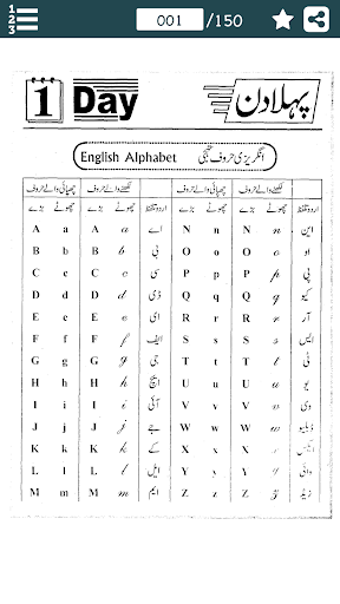 1
2
3
001 /150
1 Day پہلا دن
English Alphabet انگریزی حروف تہجی
چھپائی والے حروف لکھنے والے حروف چھپائی والے حروف لکھنے والے حروف
بڑے چھوٹے بڑے چھوٹے اردو تلفظ بڑے چھوٹے بڑے چھوٹے اردو تلفظ
A a A a اے N n N n این
B b B b بی O o O o او
C c C c سی P p P p پی
D d D d ڈی Q q Q q کیو
E e E e ای R r R r آر
F f F f ایف S s S s ایس
G g G g جی T t T t ٹی
H h H h ایچ U u U u یو
I i I i آئی V v V v وی
J j J j جے W w W w ڈبلیو
K k K k کے X x X x ایکس
L l L l ایل Y y Y y وائی
M m M m ایم Z z Z z زیڈ